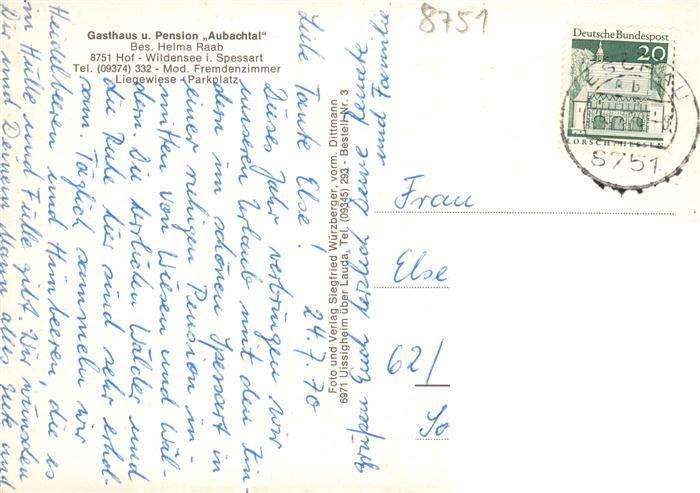 8751
Gasthaus u. Pension „Aubachtal"
Bes. Helma Raab
8751 Hof - Wildensee i. Spessart
Tel. (09374) 332 - Mod. Fremdenzimmer
Liegewiese - Parkplatz
24.7.70
Liebe Tante Else!
Dieses Jahr verbringen wir
unseren Urlaub mit den Kin-
dern im schönen Spessart in
einer ruhigen Pension in-
mitten von Wiesen und Wäl-
dern. Die herrlichen Wälder und
die Ruhe hier sind sehr erhol-
sam. Täglich sammeln wir
Heidelbeeren und Himbeeren, die es
in Hülle und Fülle gibt. Wir wünschen
Dir und Deinem Mann alles Gute und
grüßen Euch herzlich Deine Renate
und Familie
Foto und Verlag Siegfried Würzberger, vorm. Dittmann
6971 Uissigheim über Lauda, Tel. (09345) 292 - Bestell-Nr. 3
Deutsche Bundespost
20
LORSCH/HESSEN
8751
Frau
Else
62/